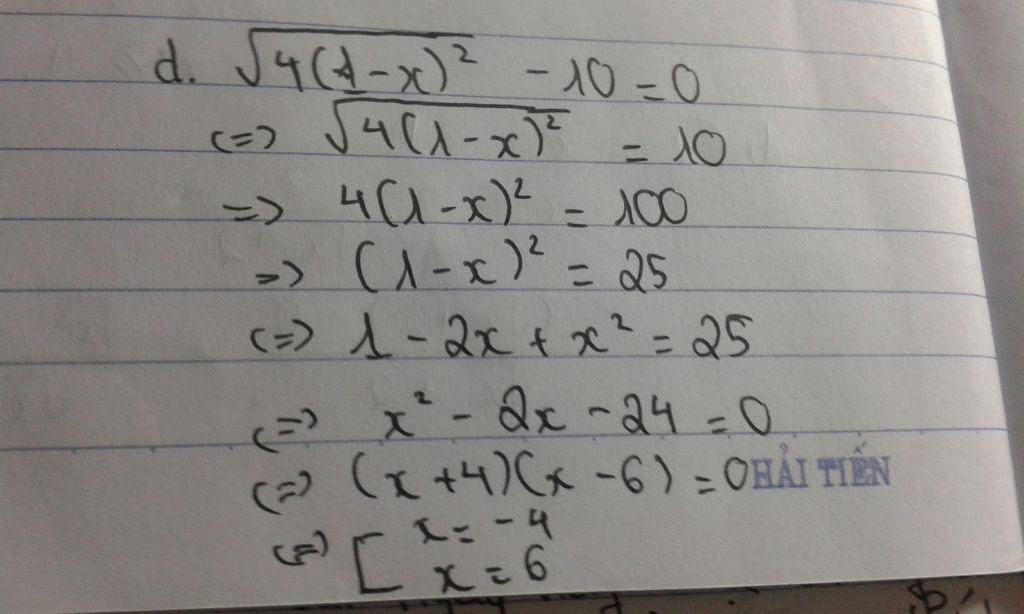 d. √4(1-x)² - 10 = 0
<=> √4(1-x)² = 10
=> 4(1-x)² = 100
=> (1-x)² = 25
<=> 1 - 2x + x² = 25
<=> x² - 2x - 24 = 0
<=> (x+4)(x-6) = 0 HẢI TIẾN
<=> [ x = -4
x = 6